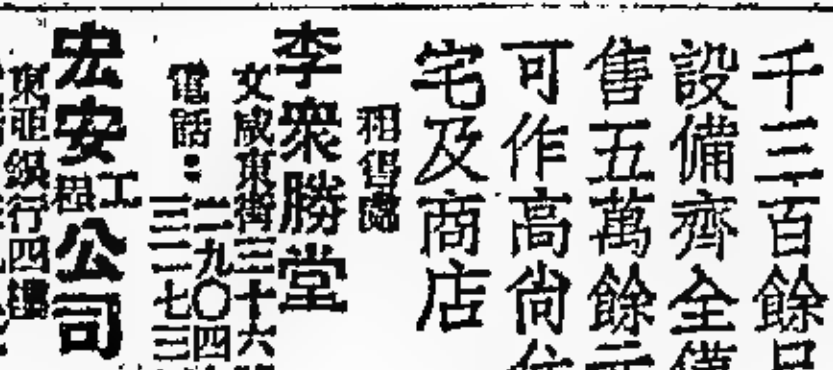 千三百餘
設備齊全僅
售五萬餘元
可作高尚住
宅及商店
租售處
李衆勝堂
文咸東街三十六
電話：二九〇四
三一七三
宏安工程公司
東亜銀行四樓